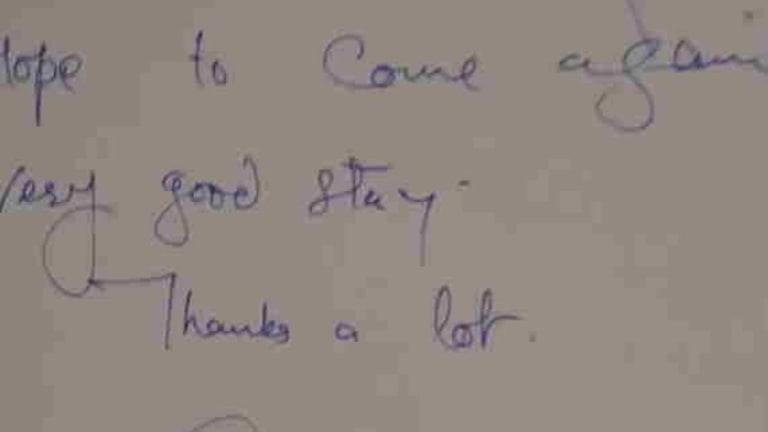 Hope to Come again
Very good stay.
Thanks a lot.